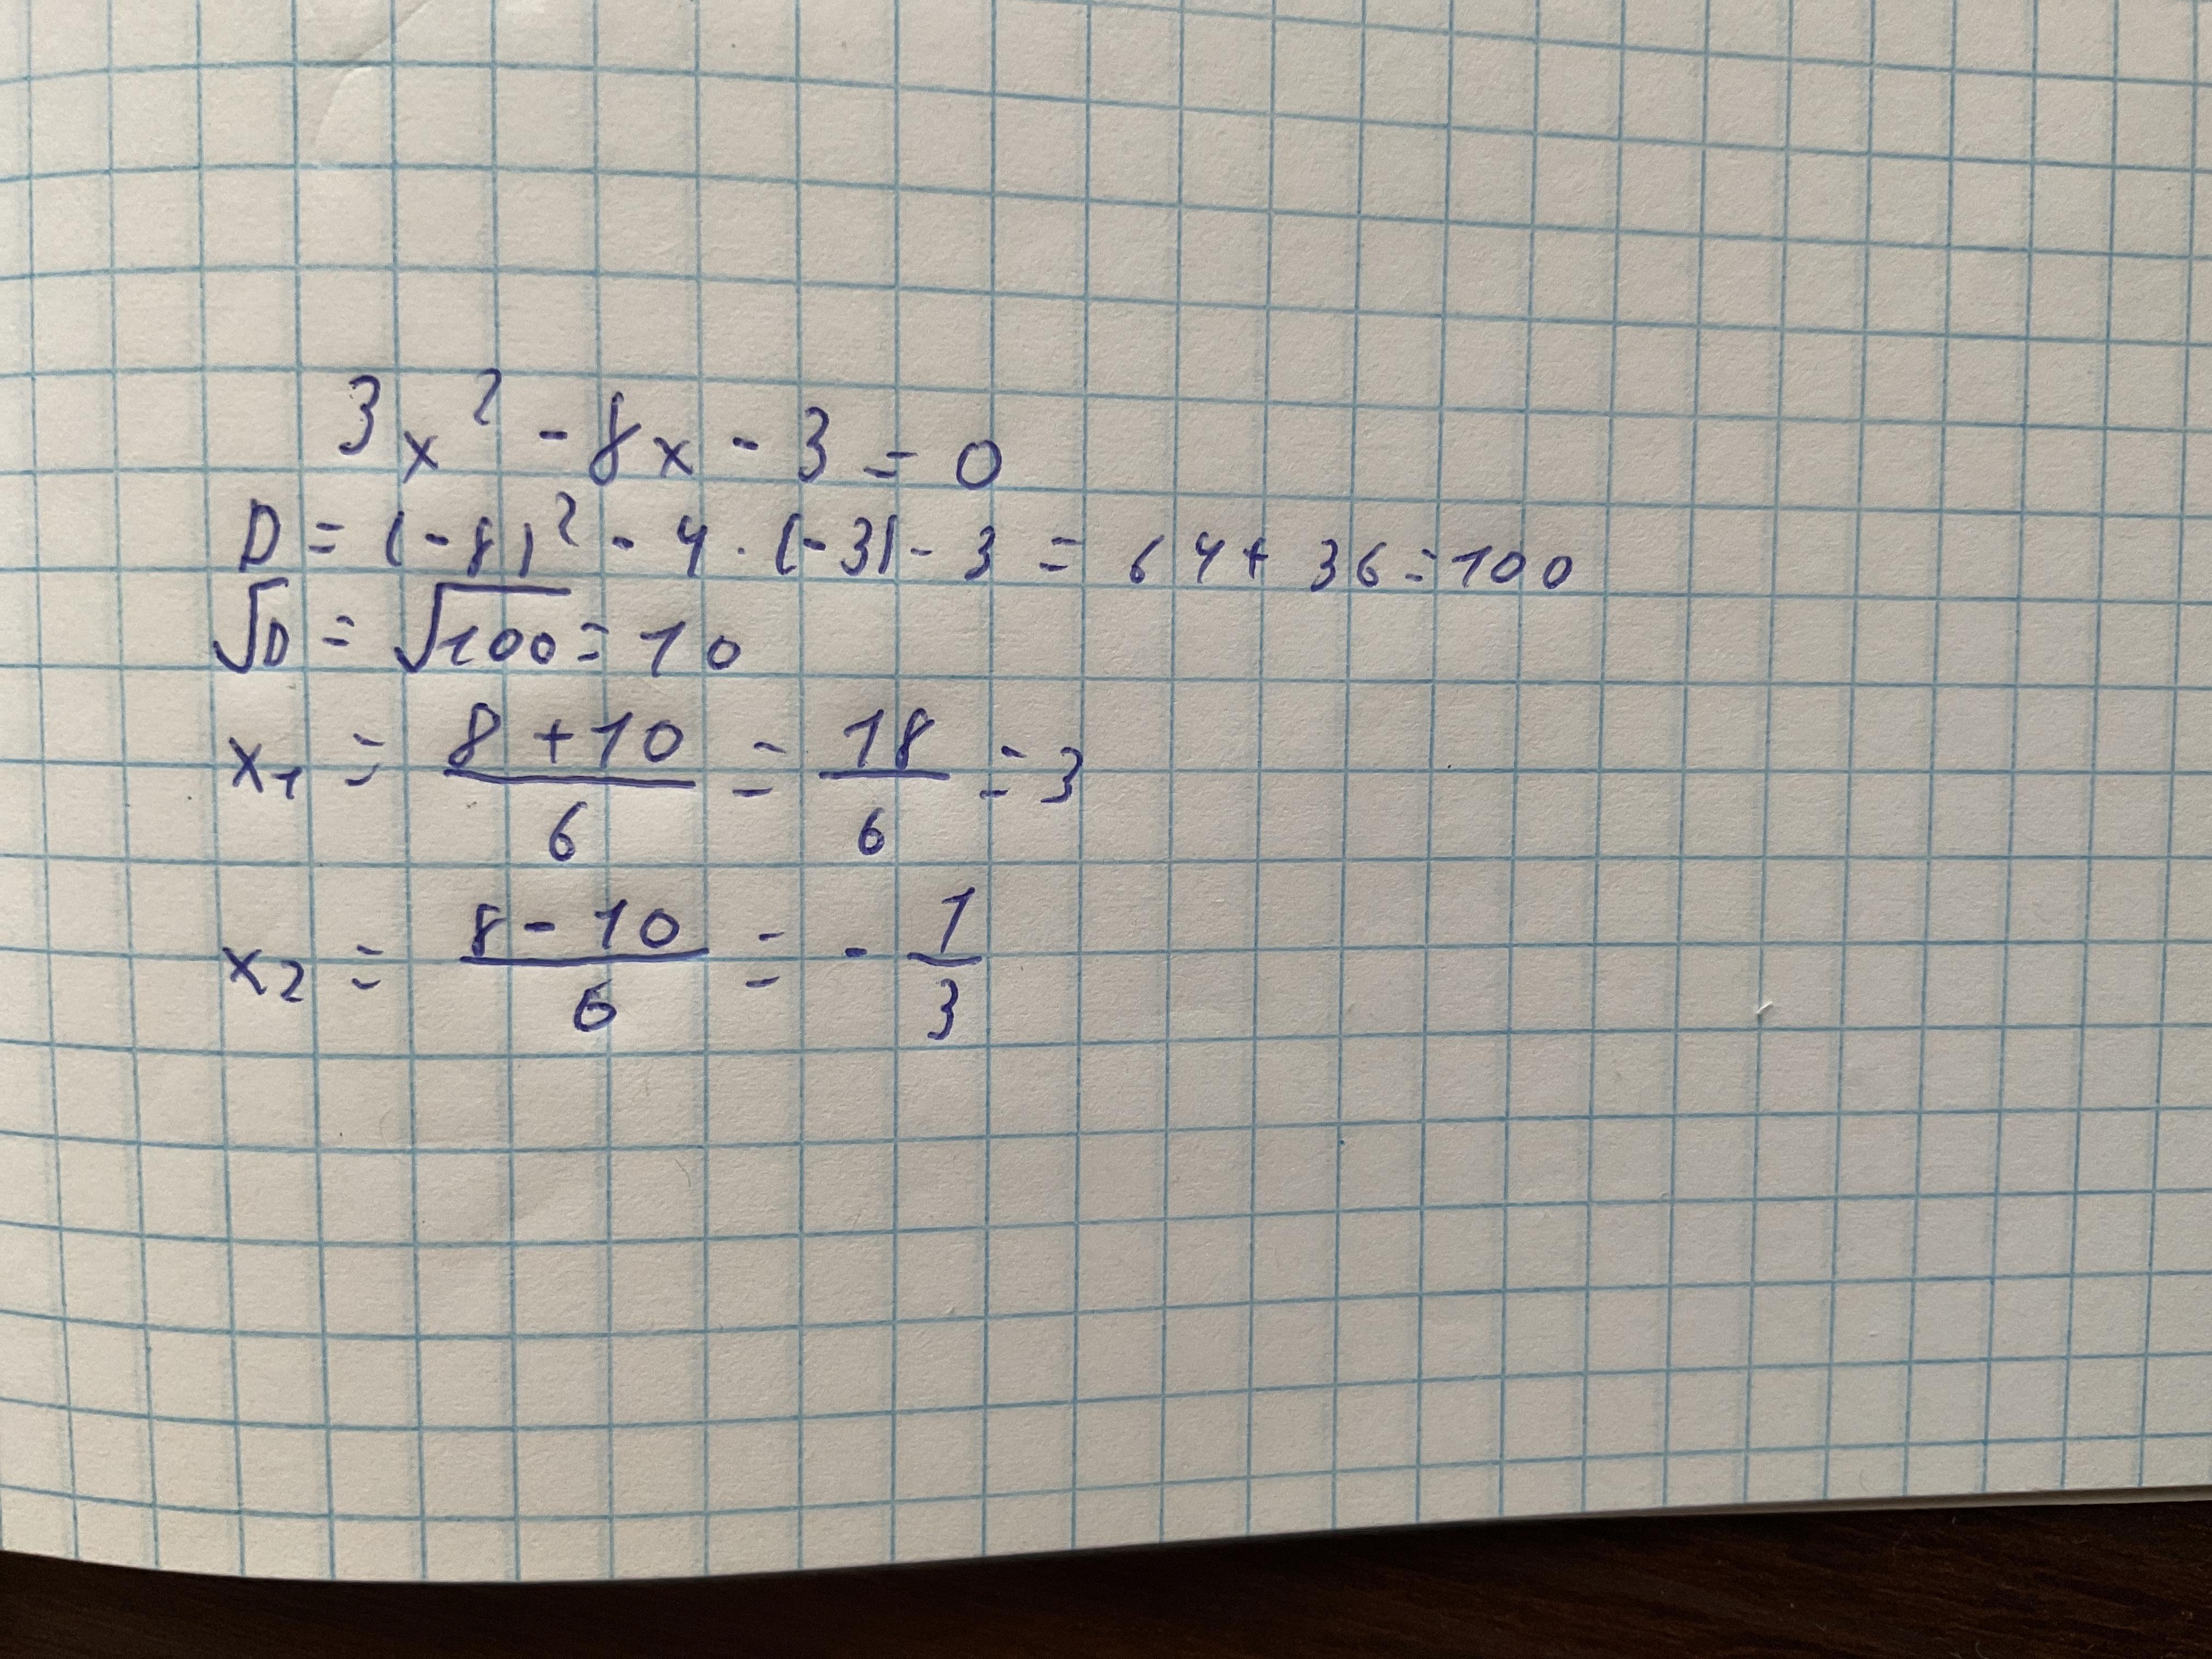 3x² - 8x - 3 = 0
D = (-8)² - 4 · (-3) - 3 = 64 + 36 = 100
√D = √100 = 10
x₁ = (8 + 10)/6 = 18/6 = 3
x₂ = (8 - 10)/6 = - 1/3